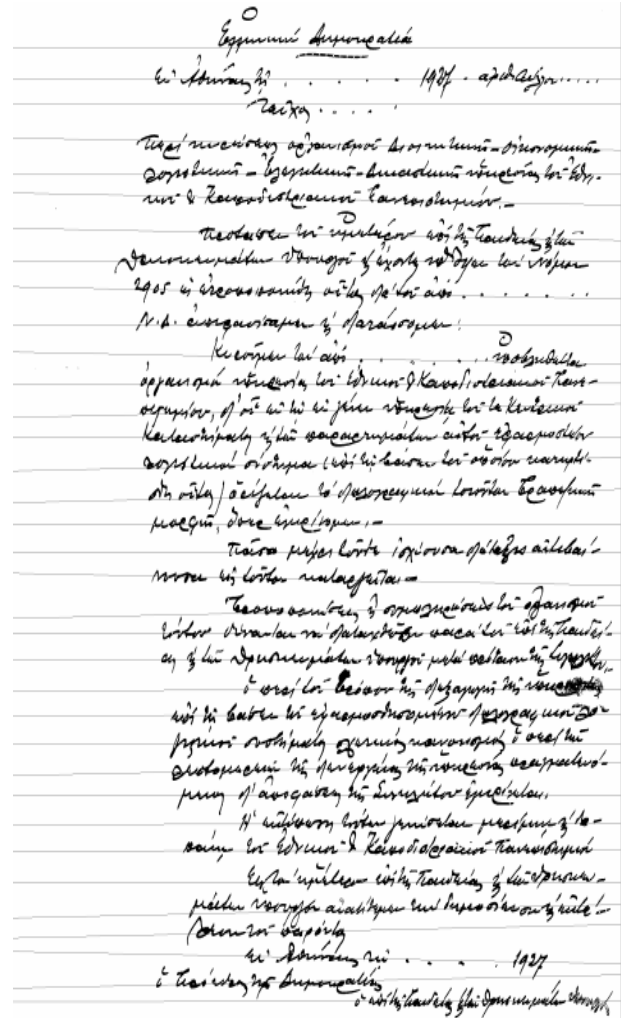 Ἑλληνικὴ Δημοκρατία
Ἐν Ἀθήναις τῇ . . . . . 1927 . ἀριθ. φύλλου . . . .
Τεῦχος . . . .
Περὶ κυρώσεως ὀργανισμοῦ Διοικητικῆς – Οἰκονομικῆς –
Λογιστικῆς – Ἐλεγκτικῆς – Δικαστικῆς ὑπηρεσίας τοῦ Ἐθνι-
κοῦ & Καποδιστριακοῦ Πανεπιστημίου. –
Προτάσει τοῦ ἡμετέρου ἐπὶ τῆς Παιδείας & τῶν
Θρησκευμάτων Ὑπουργοῦ & ἔχοντες ὑπ' ὄψει τὸν Νόμον
2905 ὡς ἐτροποποιήθη οὗτος διὰ τοῦ ἀπὸ . . . . . . .
Ν.Δ. ἀπεφασίσαμεν & διατάσσομεν:
Κυροῦμεν τὸν ἀπὸ . . . . . . . ὑποβληθέντα
ὀργανισμὸν ὑπηρεσίας τοῦ Ἐθνικοῦ & Καποδιστριακοῦ Πανε-
πιστημίου, δι' οὗ ἐν τῇ ἐν γένει ὑπηρεσίᾳ τοῦ τε Κεντρικοῦ
Καταστήματος & τῶν παραρτημάτων αὐτοῦ ἐφαρμοστέον
λογιστικὸν σύστημα (ἐπὶ τῇ βάσει τοῦ ὁποίου κατηρτί-
σθη οὗτος) ὁρίζεται τὸ διπλογραφικὸν τοιοῦτον Τραπεζικῆς
μορφῆς, ὅπερ ἐγκρίνομεν. –
Πᾶσα μέχρι τοῦδε ἰσχύουσα διάταξις ἀντιβαί-
νουσα εἰς τοῦτον καταργεῖται –
Τροποποιήσεις ἢ συμπληρώσεις τοῦ ὀργανισμοῦ
τούτου δύνανται νὰ διαταχθῶσι παρὰ τοῦ ἐπὶ τῆς Παιδεί-
ας & τῶν Θρησκευμάτων Ὑπουργοῦ μετὰ πρότασιν τῆς Συγκλήτου.
ὁ περὶ τοῦ τρόπου τῆς διεξαγωγῆς τῆς ὑπηρεσίας
ἐπὶ τῇ βάσει τοῦ ἐφαρμοσθησομένου διπλογραφικοῦ λο-
γιστικοῦ συστήματος σχετικὸς κανονισμὸς ὁ περὶ τῶν
λεπτομερειῶν τῆς ἐνεργείας τῆς ὑπηρεσίας πραγματευό-
μενος δι' ἀποφάσεως τῆς Συγκλήτου ἐγκρίνεται.
Ἡ ἐκτύπωσις τούτου γενήσεται μερίμνῃ & δα-
πάνῃ τοῦ Ἐθνικοῦ & Καποδιστριακοῦ Πανεπιστημίου
Εἰς τὸν ἡμέτερον ἐπὶ τῆς Παιδείας & τῶν Θρησκευ-
μάτων ὑπουργὸν ἀνατίθεμεν τὴν δημοσίευσιν & ἐκτέ-
λεσιν τοῦ παρόντος
Ἐν Ἀθήναις τῇ . . . . 1927
ὁ Πρόεδρος τῆς Δημοκρατίας
ὁ ἐπὶ τῆς Παιδείας & τῶν Θρησκευμάτων Ὑπουργὸς